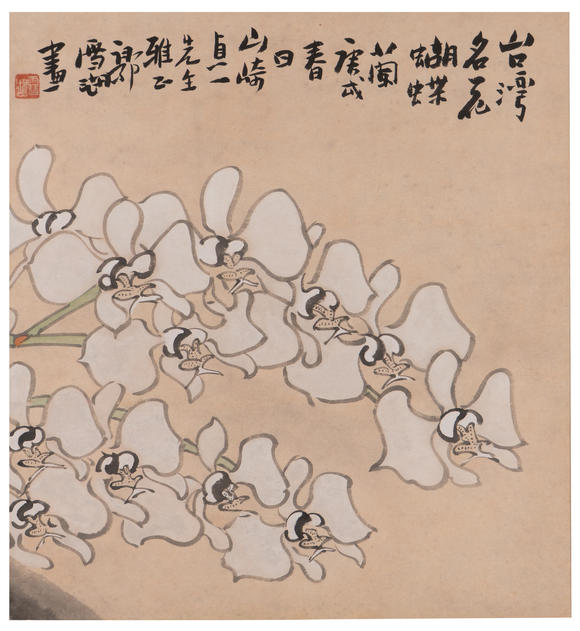 台灣
名花
蝴蝶
蘭
庚戌
春
日
山崎
貞一
先生
雅正
畫